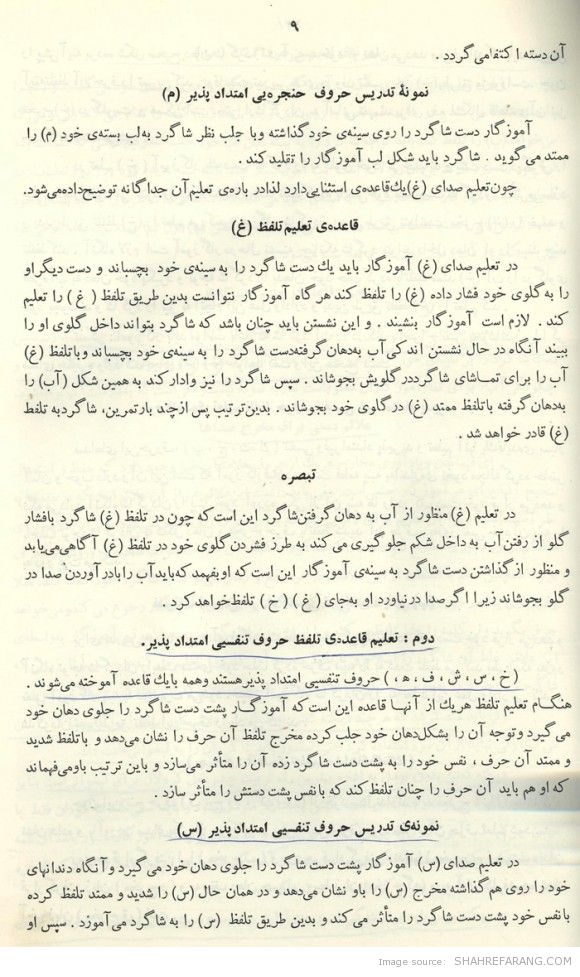 ۹
آن دسته اکتفا می گردد .
نمونهٔ تدریس حروف حنجره‌یی امتداد پذیر (م)
آموزگار دست شاگرد را روی سینه‌ی خود گذاشته و با جلب نظر شاگرد به لب بسته‌ی خود (م) را
ممتد می گوید . شاگرد باید شکل لب آموزگار را تقلید کند .
چون تعلیم صدای (غ) یك قاعده‌ی استثنایی دارد لذا در باره‌ی تعلیم آن جداگانه توضیح داده می‌شود.
قاعده‌ی تعلیم تلفظ (غ)
در تعلیم صدای (غ) آموزگار باید یك دست شاگرد را به سینه‌ی خود بچسباند و دست دیگر او
را به گلوی خود فشار داده (غ) را تلفظ کند هر گاه آموزگار نتوانست بدین طریق تلفظ ( غ ) را تعلیم
کند . لازم است آموزگار بنشیند . و این نشستن باید چنان باشد که شاگرد بتواند داخل گلوی او را
ببیند آنگاه در حال نشستن اندکی آب به دهان گرفته دست شاگرد را به سینه‌ی خود بچسباند و با تلفظ (غ)
آب را برای تماشای شاگرد در گلویش بجوشاند . سپس شاگرد را نیز وادار کند به همین شکل (آب) را
به دهان گرفته با تلفظ ممتد (غ) در گلوی خود بجوشاند . بدین ترتیب پس از چند بار تمرین، شاگرد به تلفظ
(غ) قادر خواهد شد .
تبصره
در تعلیم (غ) منظور از آب به دهان گرفتن شاگرد این است که چون در تلفظ (غ) شاگرد بافشار
گلو از رفتن آب به داخل شکم جلوگیری می کند به طرز فشردن گلوی خود در تلفظ (غ) آگاهی می یابد
و منظور از گذاشتن دست شاگرد به سینه‌ی آموزگار این است که او بفهمد که باید آب را با در آوردن صدا در
گلو بجوشاند زیرا اگر صدا در نیاورد او به جای ( غ ) ( خ ) تلفظ خواهد کرد .
دوم : تعلیم قاعده‌ی تلفظ حروف تنفسیی امتداد پذیر.
( خ ، س ، ش ، ف ، ه ، ) حروف تنفسیی امتداد پذیر هستند و همه با یك قاعده آموخته می‌شوند .
هنگام تعلیم تلفظ هر یك از آنها قاعده این است که آموزگار پشت دست شاگرد را جلوی دهان خود
می گیرد و توجه آن را بشکل دهان خود جلب کرده مخرج تلفظ آن حرف را نشان می‌دهد و با تلفظ شدید
و ممتد آن حرف ، نفس خود را به پشت دست شاگرد زده آن را متأثر می‌سازد و باین ترتیب باو می‌فهماند
که او هم باید آن حرف را چنان تلفظ کند که با نفس پشت دستش را متأثر سازد .
نمونه‌ی تدریس حروف تنفسیی امتداد پذیر (س)
در تعلیم صدای (س) آموزگار پشت دست شاگرد را جلوی دهان خود می گیرد و آنگاه دندانهای
خود را روی هم گذاشته مخرج (س) را باو نشان می‌دهد و در همان حال (س) را شدید و ممتد تلفظ کرده
با نفس خود پشت دست شاگرد را متأثر می کند و بدین طریق تلفظ (س) را به شاگرد می آموزد . سپس او
Image source: SHAHREFARANG.COM